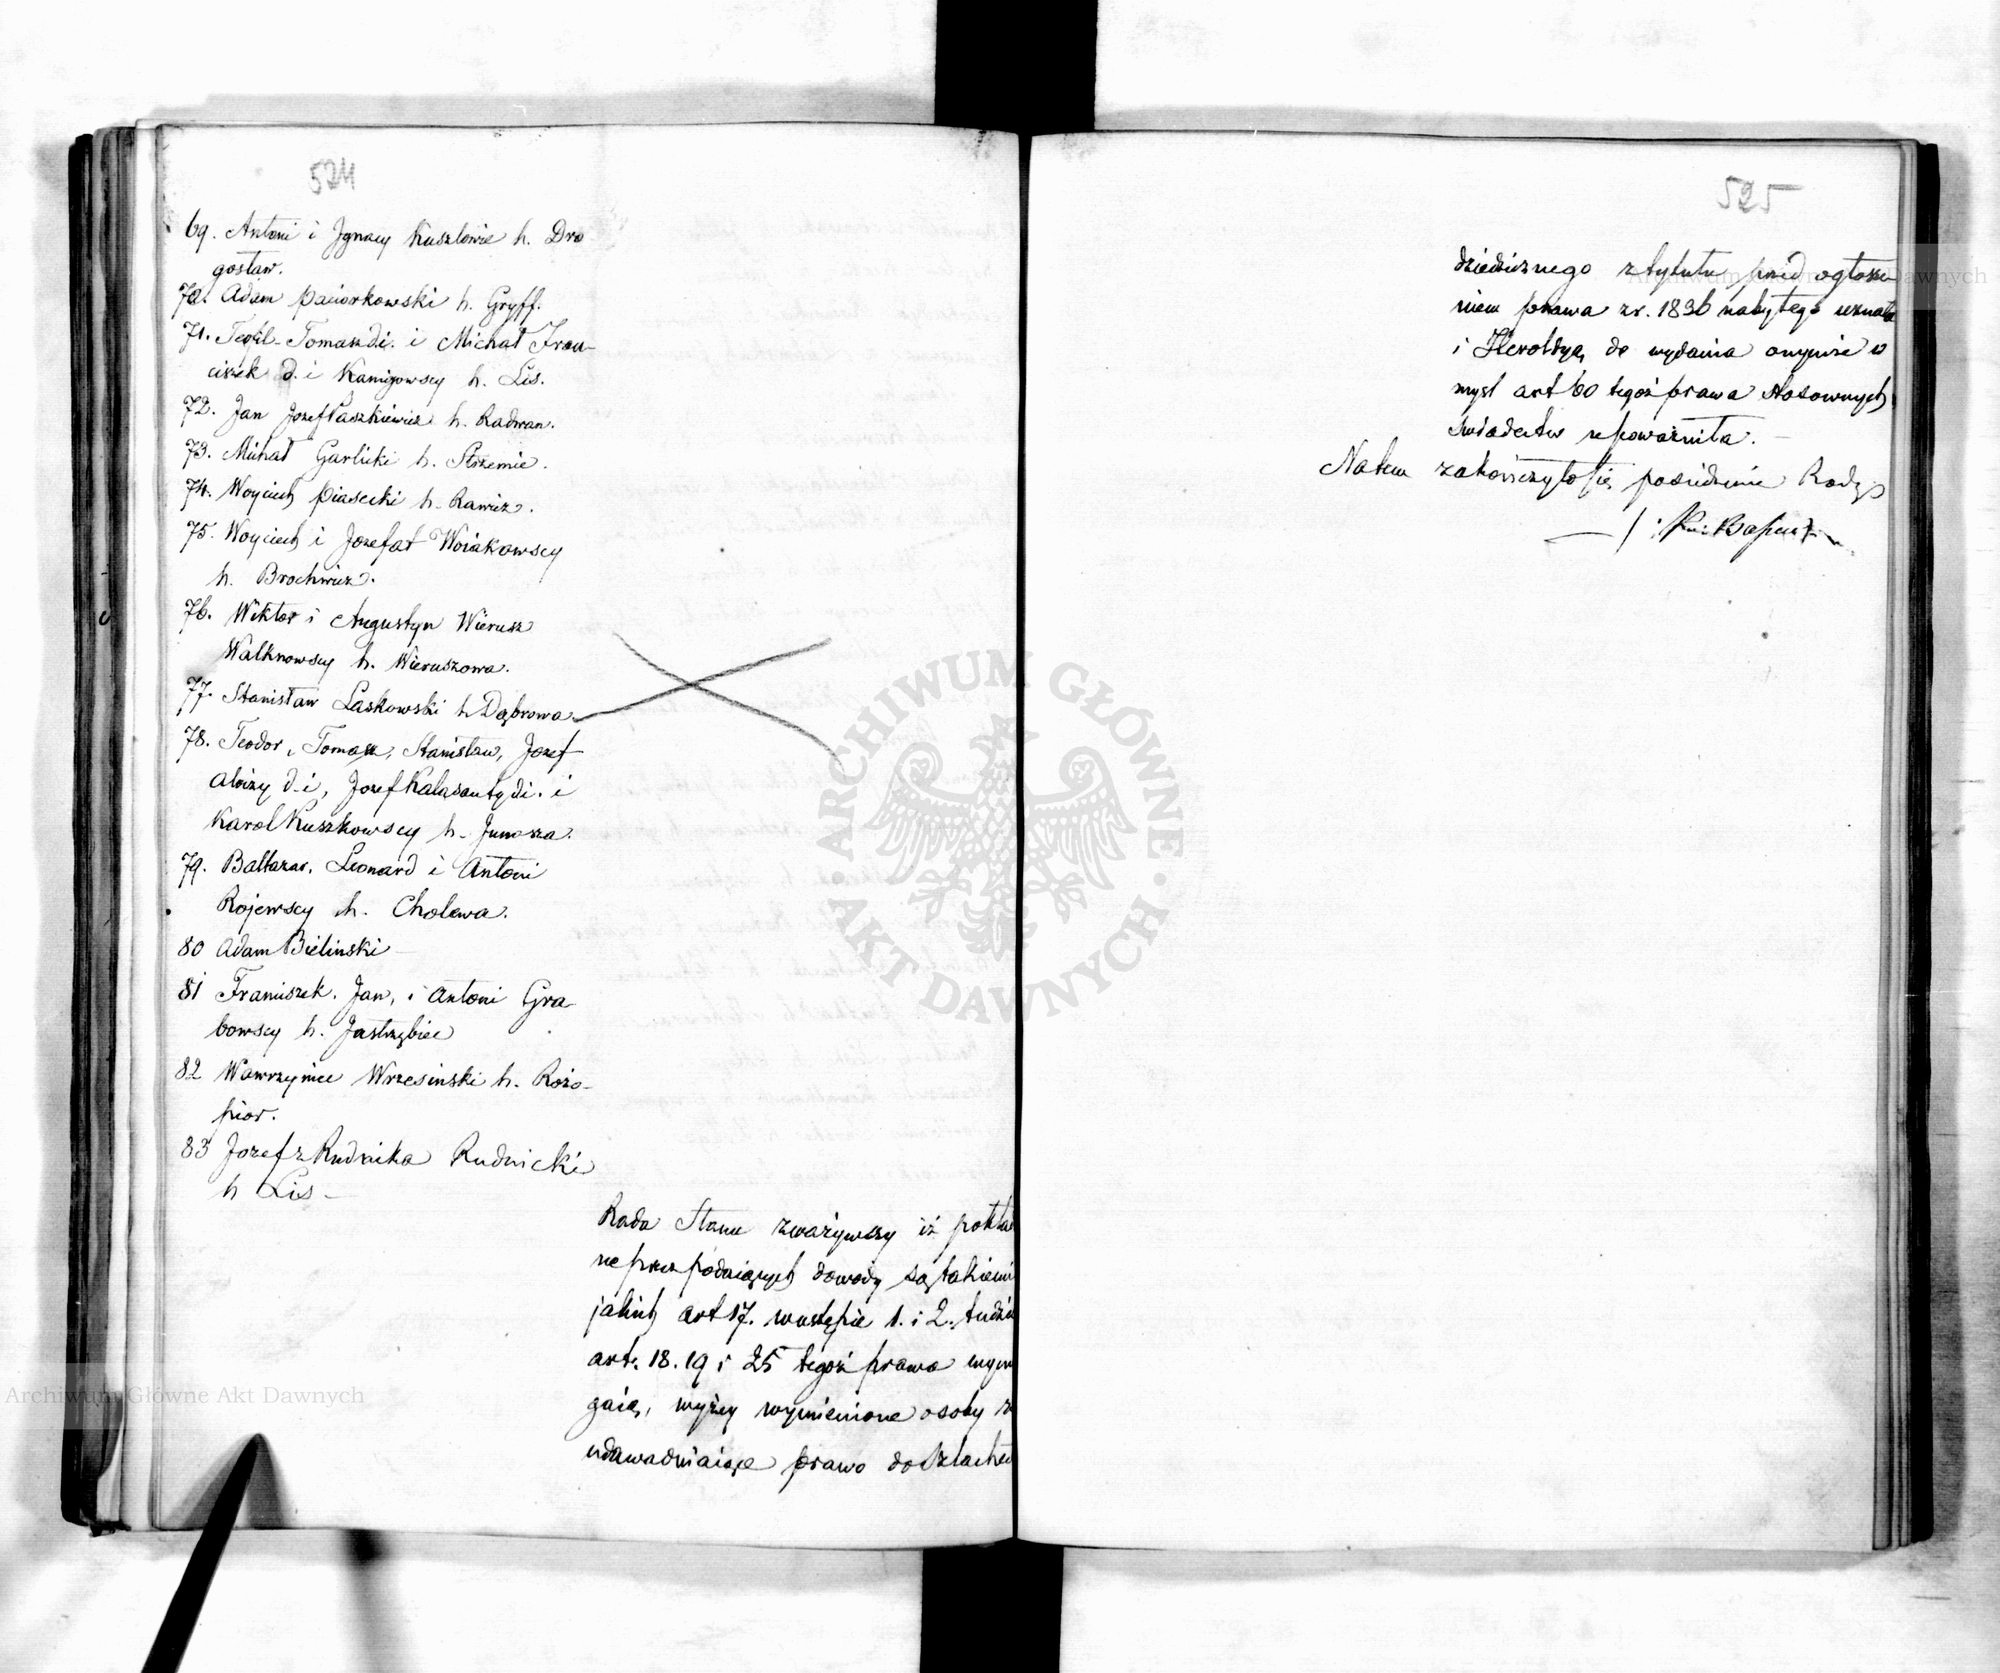 524
69. Antoni i Jgnacy Kuszlowie h. Dro
gosław.
70. Adam Paciorkowski h. Gryff.
71. Teofil-Tomasz d.i. i Michał Fran-
ciszek d.i Kamigowscy h. Lis.
72. Jan Jozef Paszkiewicz h. Radwan.
73. Michał Garlicki h. Strzemie.
74. Woyciech Piasecki h. Rawicz.
75. Woyciech i Jozefat Wosiakowscy
h. Brochwicz.
76. Wiktor i Augustyn Wierusz
Walknowscy h. Wieruszowa.
77. Stanisław Laskowski h Dąbrowa.
78. Teodor, Tomasz, Stanisław, Jozef
Aloizy d.i, Jozef Kalasanty d.i. i
Karol Kuszkowscy h. Junosza.
79. Baltazar, Leonard i Antoni
Rojewscy h. Cholewa.
80 Adam Bielinski
81 Franciszek, Jan, i Antoni Gra
bowscy h. Jastrzębiec
82 Wawrzyniec Wrzesinski h. Rożo-
pior.
83 Jozef z Rudnika Rudnicki
h Lis -
Rada Stanu zważywszy iż pokła
ne przez podaiących dowody są takiemi
jakich art 17. w ustępie 1. i 2. tudzie
art. 18. 19 i 25 tegoż prawa wym
gaią, wyżey wymienione osoby z
udawadniaiące prawo do Szlachec
525
dziedzicznego z tytułu przed ogłosze
niem prawa z r. 1836 nabytego uznała
i Heroldyą do wydania onymże w
myśl art 60 tegoż prawa stosownych
świadectw upoważniła.
Natem zakończyło się posiedzenie Rady
ARCHIWUM GŁÓWNE AKT DAWNYCH
Archiwum Główne Akt Dawnych
Archiwum Główne Akt Dawnych